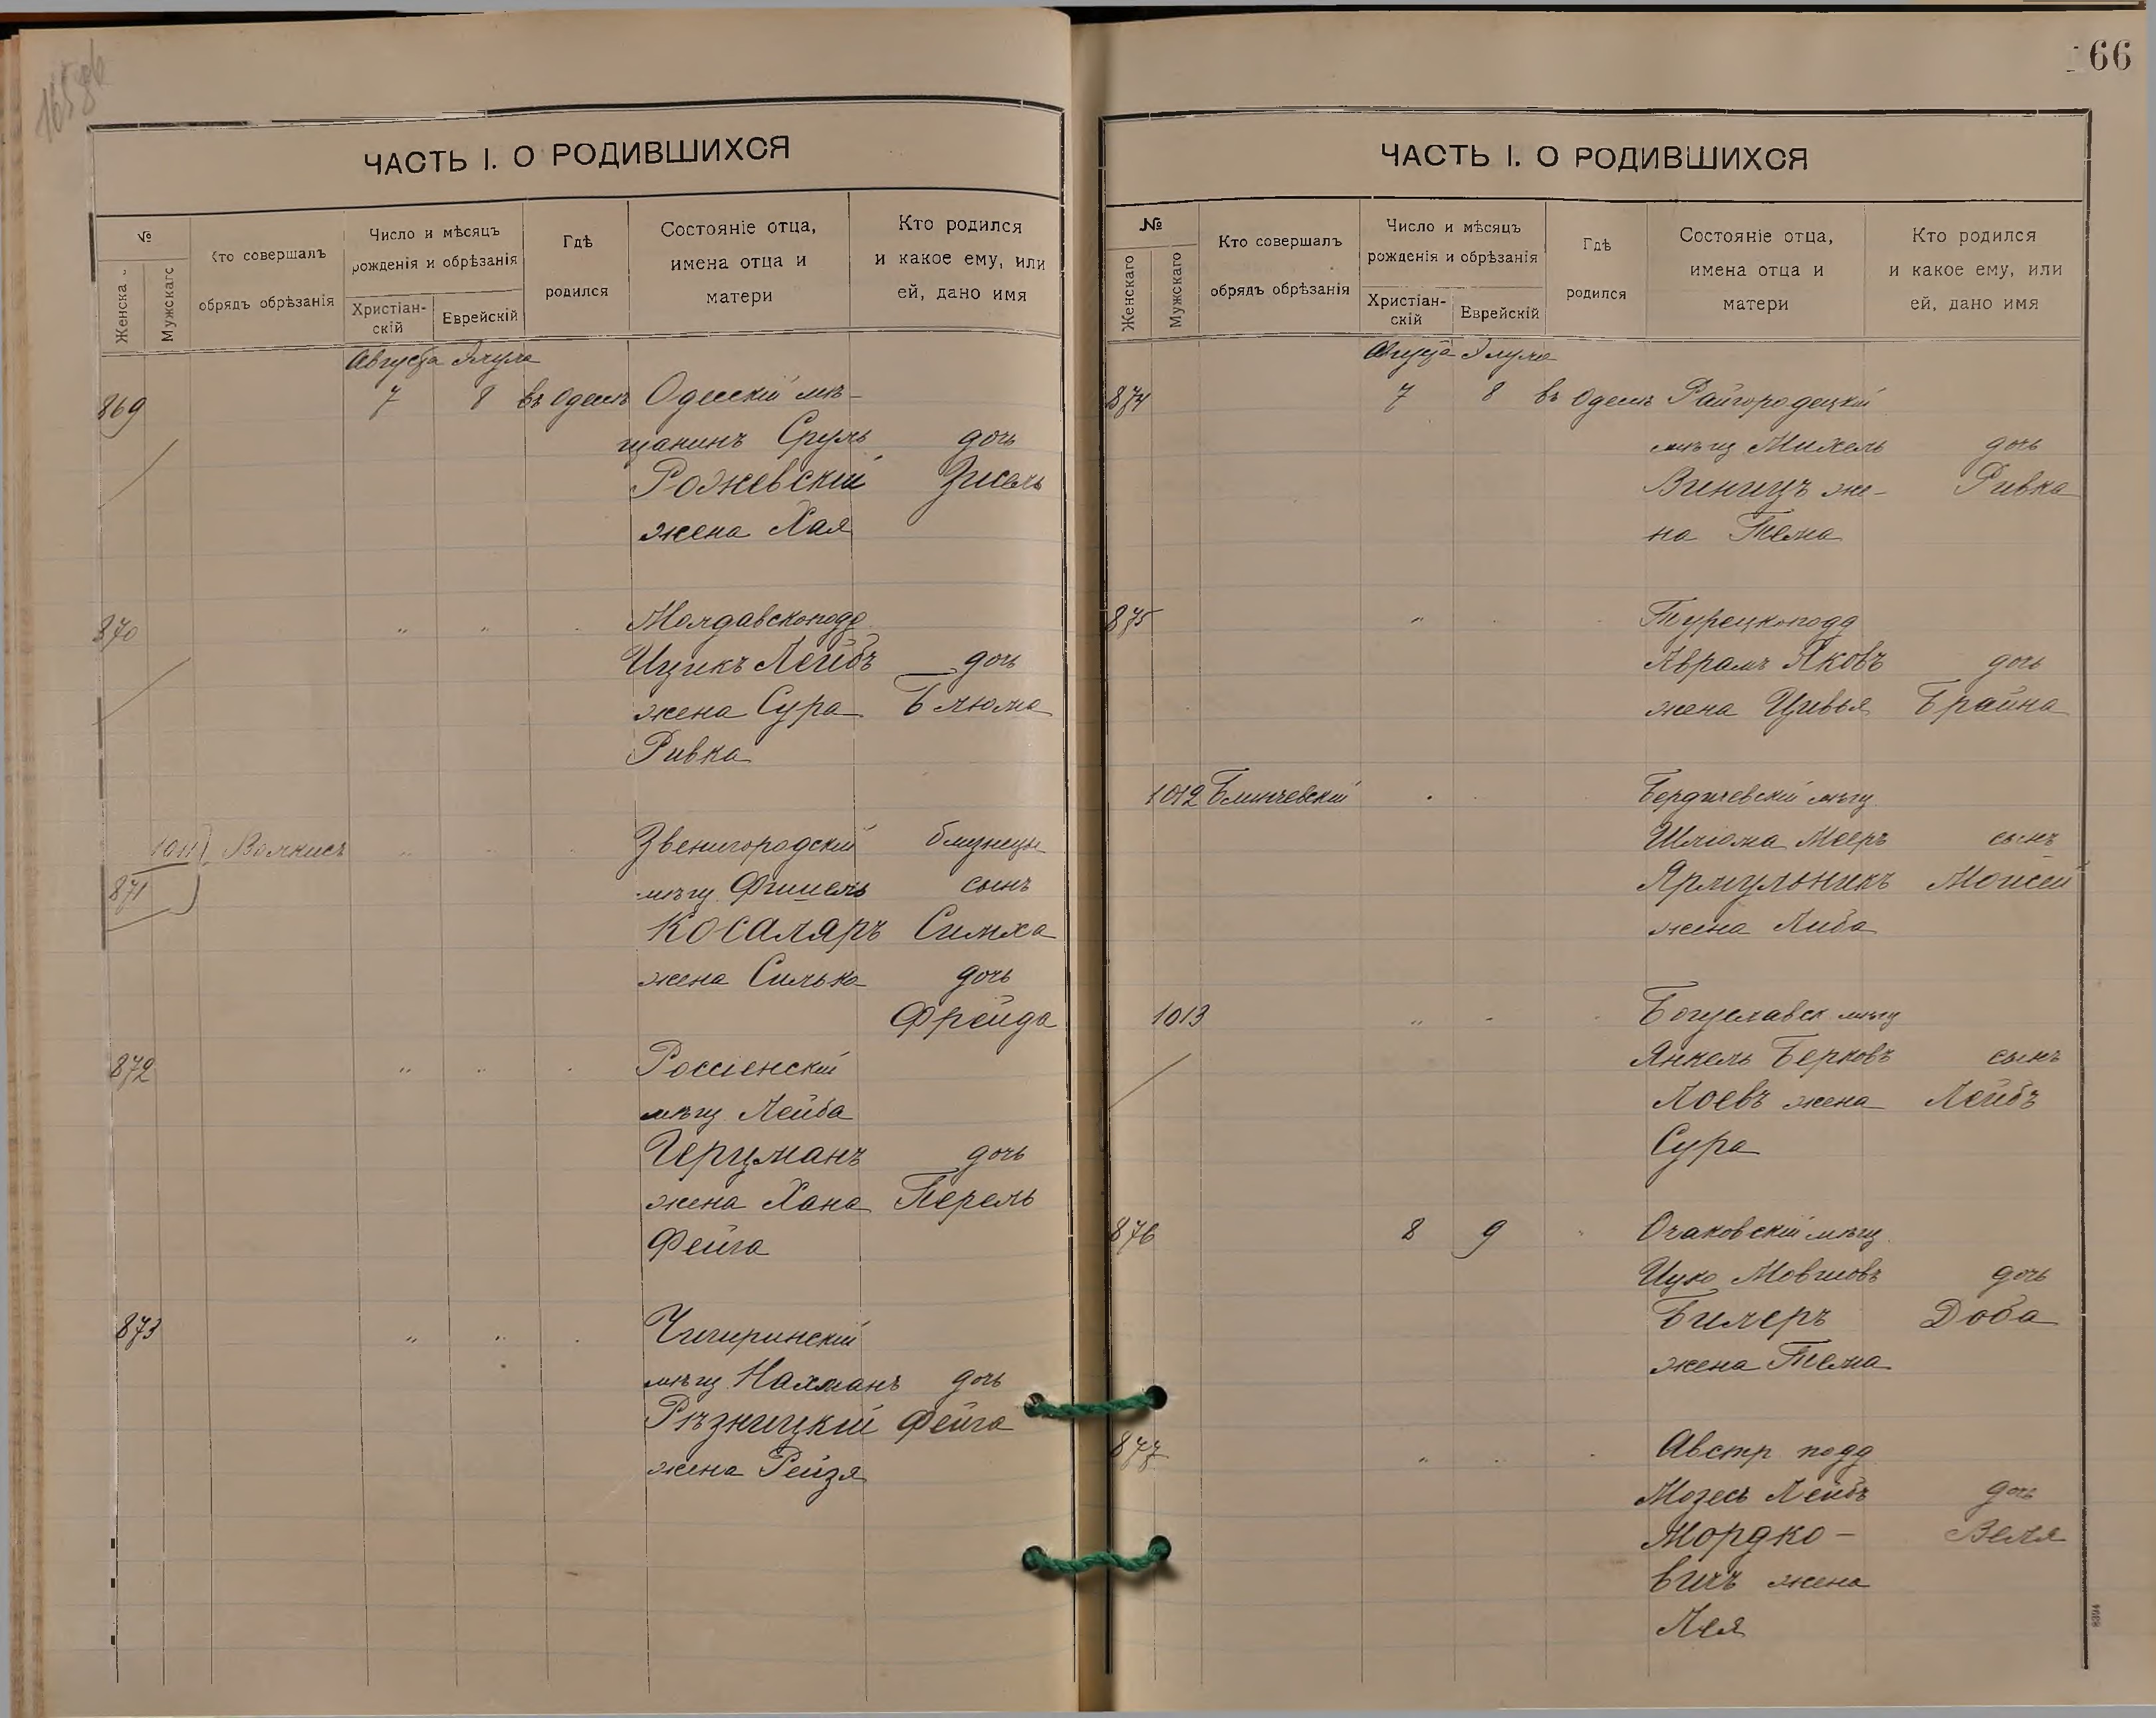 165об
ЧАСТЬ I. О РОДИВШИХСЯ
№
Женска
Мужскаго
Кто совершалъ
обрядъ обрѣзанія
Число и мѣсяцъ
рожденія и обрѣзанія
Христіан-
скій
Еврейскій
Гдѣ
родился
Состояніе отца,
имена отца и
матери
Кто родился
и какое ему, или
ей, дано имя
Августа Элула
869 7 8 въ Одессѣ Одесскій мѣ-
щанинъ Сруль дочь
Рожевскій Зисель
жена Хая
870 " " Молдавскоподд
Ицикъ Лейбъ дочь
жена Сура Блюма
Ривка
1011 Волкисъ " Звенигородскій близнецы
871 мѣщ Фишель сынъ
Косаляръ Симха
жена Силька дочь
Фрейда
872 " " Россіенскій
мѣщ Лейба
Герцманъ дочь
жена Хана Перель
Фейга
873 " " Чигиринскій
мѣщ Нахманъ дочь
Рѣзницкій Фейга
жена Рейзя
66
ЧАСТЬ I. О РОДИВШИХСЯ
№
Женскаго
Мужскаго
Кто совершалъ
обрядъ обрѣзанія
Число и мѣсяцъ
рожденія и обрѣзанія
Христіан-
скій
Еврейскій
Гдѣ
родился
Состояніе отца,
имена отца и
матери
Кто родился
и какое ему, или
ей, дано имя
Августа Элула
874 7 8 въ Одессѣ Райгородецкій
мѣщ Михель дочь
Виницъ же- Ривка
на Тема
875 " Турецкоподд
Аврамъ Яковъ дочь
жена Цивья Брайна
1012 Блинчевскій Бердичевскій мѣщ
Шліома Мееръ сынъ
Ярмульникъ Моисей
жена Либа
1013 " " Богуславск мѣщ
Янкель Берковъ сынъ
Лоевъ жена Лейбъ
Сура
876 8 9 Очаковскій мѣщ
Ицко Мовшовъ дочь
Билеръ Доба
жена Тема
877 " Австр подд
Мозесъ Лейбъ дочь
Мордко- Веля
вичъ жена
Лея
8394